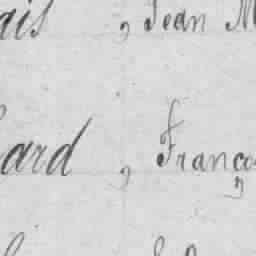 ais , Jean M
ard , Franço